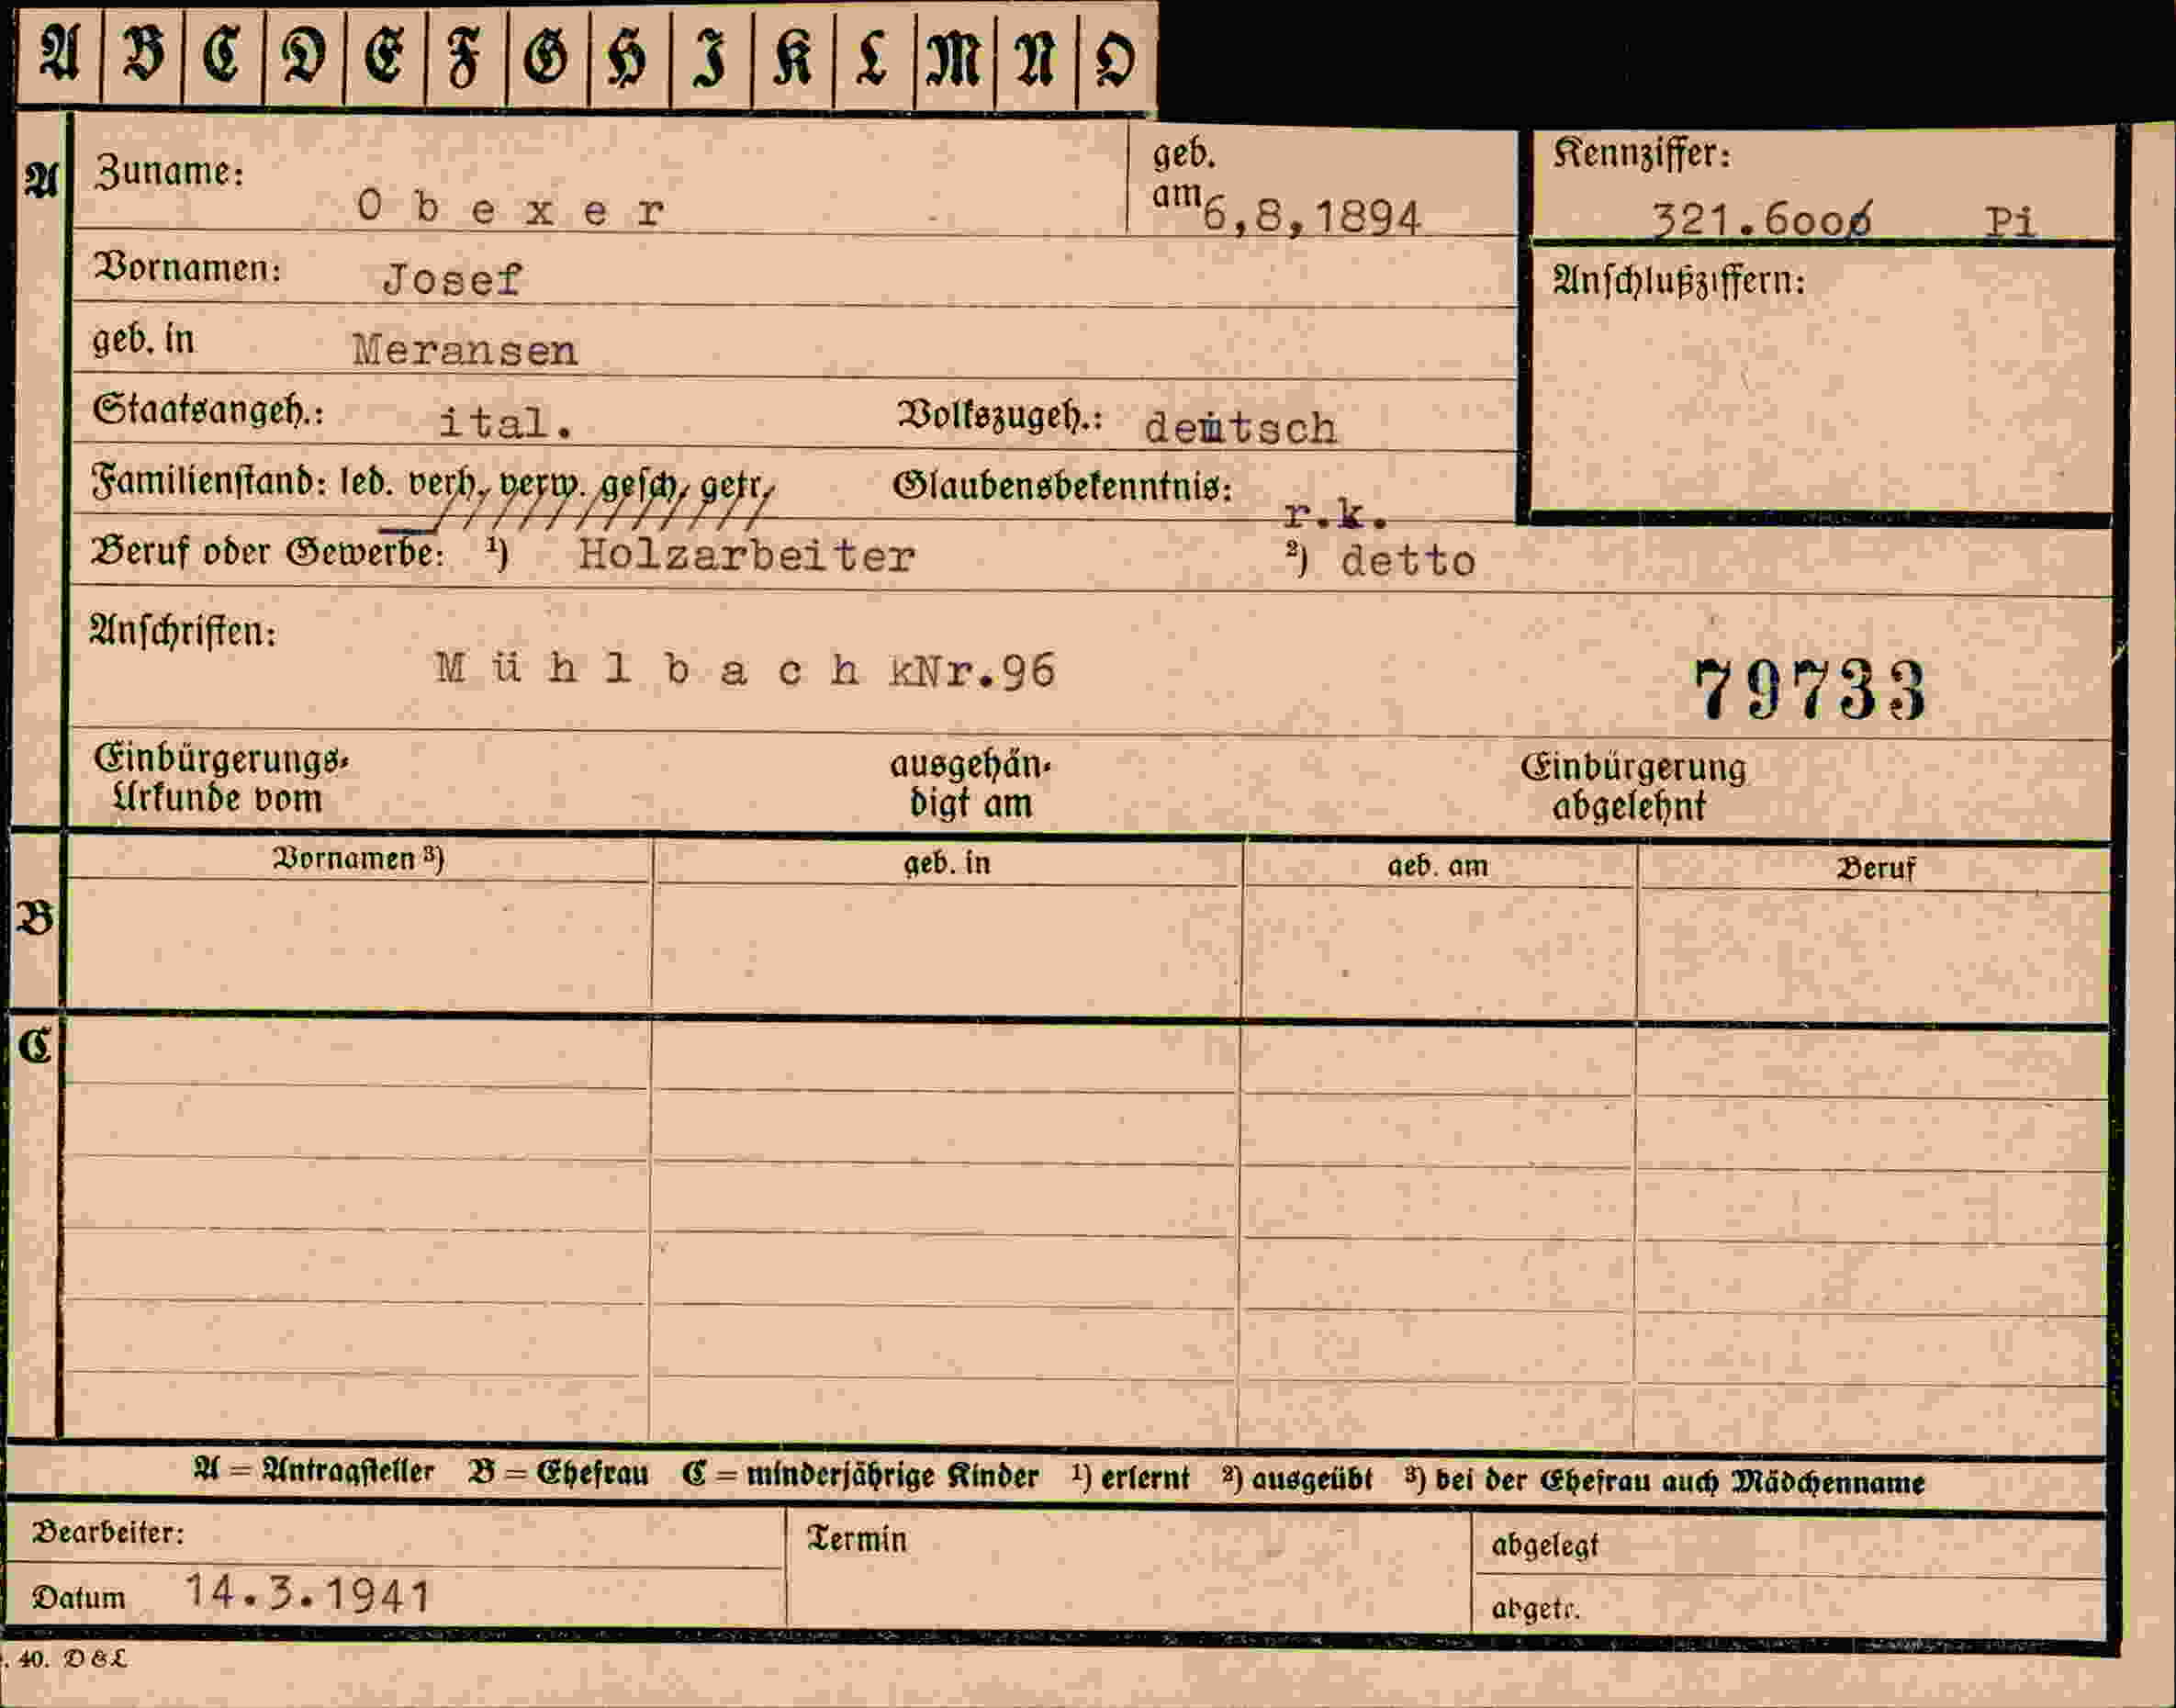 A B C D E F G H I K L M N O
A Zuname: Obexer geb. am 6,8,1894 Kennziffer: 321.6006 Pi
Vornamen: Josef Anschlußziffern:
geb. in Meransen
Staatsangeh.: ital. Volkszugeh.: deutsch
Familienstand: led. verh. verw. gesch. getr. Glaubensbekenntnis: r.k.
Beruf oder Gewerbe: ¹) Holzarbeiter ²) detto
Anschriften: Mühlbach kNr.96 79733
Einbürgerungs- ausgehän- Einbürgerung
Urkunde vom digt am abgelehnt
Vornamen ³) geb. in geb. am Beruf
B
C
A = Antragsteller B = Ehefrau C = minderjährige Kinder ¹) erlernt ²) ausgeübt ³) bei der Ehefrau auch Mädchenname
Bearbeiter: Termin abgelegt
Datum 14.3.1941 abgetr.
. 40. D & L